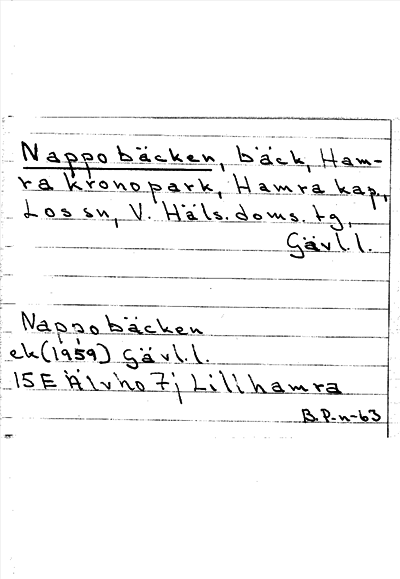 Nappobäcken, bäck, Ham-
ra kronopark, Hamra kap.,
Los sn, V. Häls. doms. tg,
Gävl.l.
Nappobäcken
ek(1959) Gävl.l.
15E Älvho 7j Lillhamra
B.P-n-63